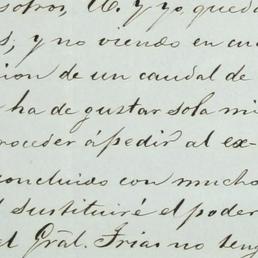 sotros, U. y yo, queda
s, y no viendo en cu
ion de un caudal de
ha de gustar sola mi
roceder á pedir al ex-
concluido con mucho
sustituiré el poder
el Gral. Frias no teng